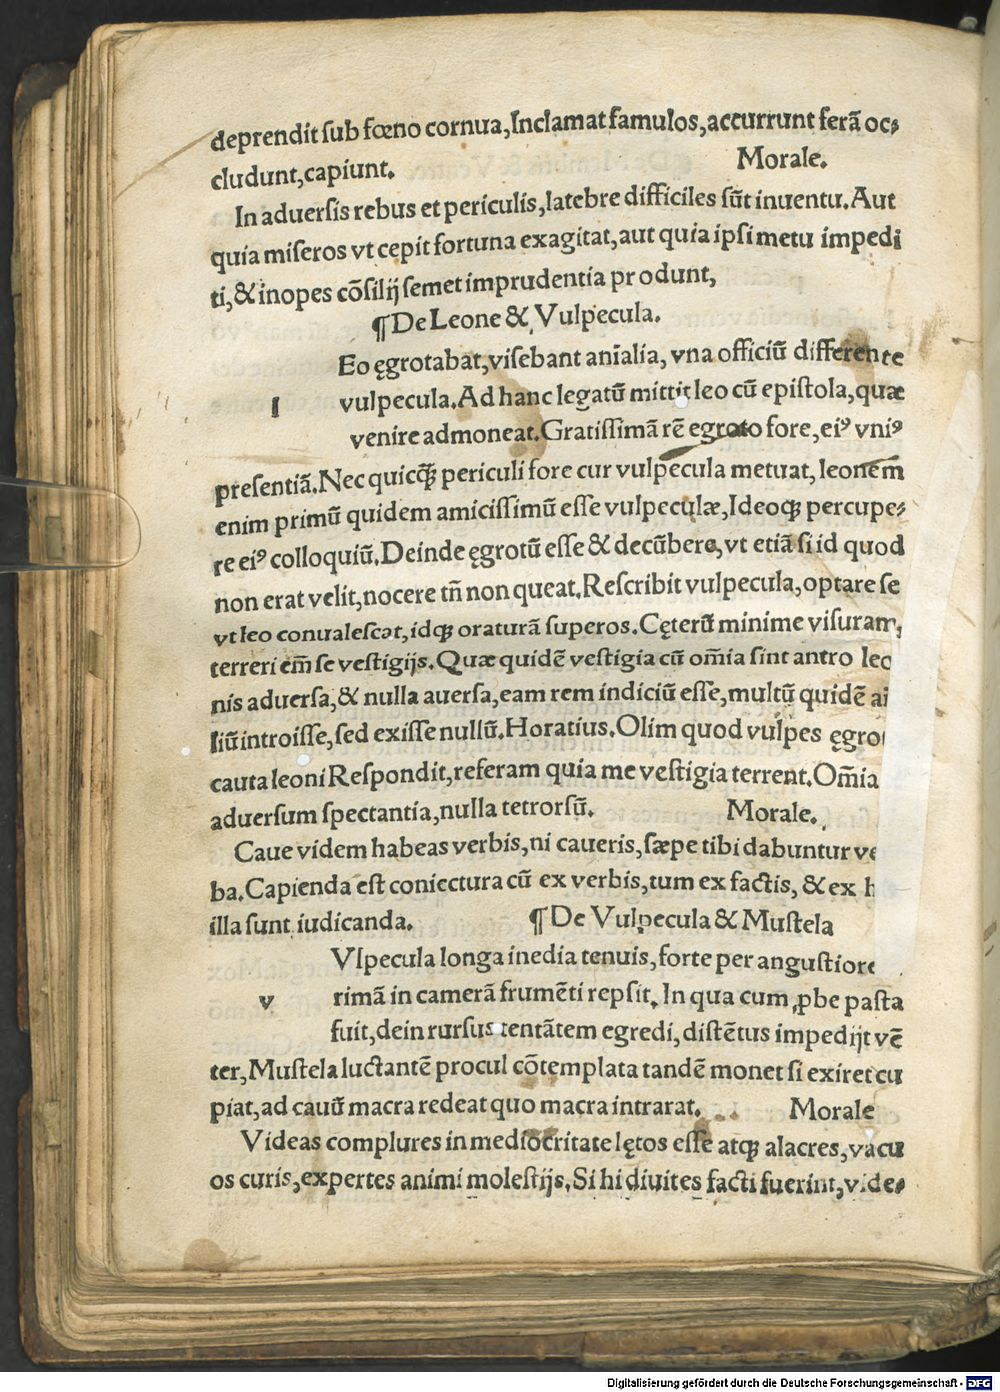 deprendit sub fœno cornua, Inclamat famulos, accurrunt ferã oc⸗
cludunt, capiunt. Morale.
In aduersis rebus et periculis, latebre difficiles sũt inuentu. Aut
quia miseros vt cepit fortuna exagitat, aut quia ipsi metu impedi
ti, & inopes cõsilij semet imprudentia produnt,
¶ De Leone & Vulpecula.
Eo ęgrotabat, visebant anialia, vna officiũ differente
l vulpecula. Ad hanc legatũ mittit leo cũ epistola, quæ
venire admoneat. Gratissimã rẽ egroto fore, eiꝰ vniꝰ
presentiã. Nec quicꝗ̃ periculi fore cur vulpecula metuat, leonem
enim primũ quidem amicissimũ esse vulpeculæ, Ideoqꝫ percupe⸗
re eiꝰ colloquiũ. Deinde ęgrotũ esse & decũbere, vt etiã si id quod
non erat velit, nocere tñ non queat. Rescribit vulpecula, optare se
vt leo conualescat, idqꝫ oraturã superos. Cęterũ minime visuram,
terreri em̃ se vestigijs. Quæ quidẽ vestigia cũ om̃ia sint antro leo
nis aduersa, & nulla auersa, eam rem indiciũ esse, multũ quidẽ ai
liũ introisse, sed exisse nullũ. Horatius. Olim quod vulpes ęgro
cauta leoni Respondit, referam quia me vestigia terrent. Om̃ia
aduersum spectantia, nulla tetrorsũ. Morale.
Caue videm habeas verbis, ni caueris, sæpe tibi dabuntur ve
ba. Capienda est coniectura cũ ex verbis, tum ex factis, & ex h
illa sunt iudicanda. ¶ De Vulpecula & Mustela
Vlpecula longa inedia tenuis, forte per angustiore
v rimã in camerã frumẽti repsit. In qua cum ꝓbe pasta
fuit, dein rursus tentãtem egredi, distẽtus impedijt vẽ
ter, Mustela luctantẽ procul cõtemplata tandẽ monet si exire cu
piat, ad cauũ macra redeat quo macra intrarat. Morale
Videas complures in mediocritate lętos esse atqꝫ alacres, vacu
os curis, expertes animi molestijs. Si hi diuites facti fuerint, vide⸗
Digitalisierung gefördert durch die Deutsche Forschungsgemeinschaft - DFG